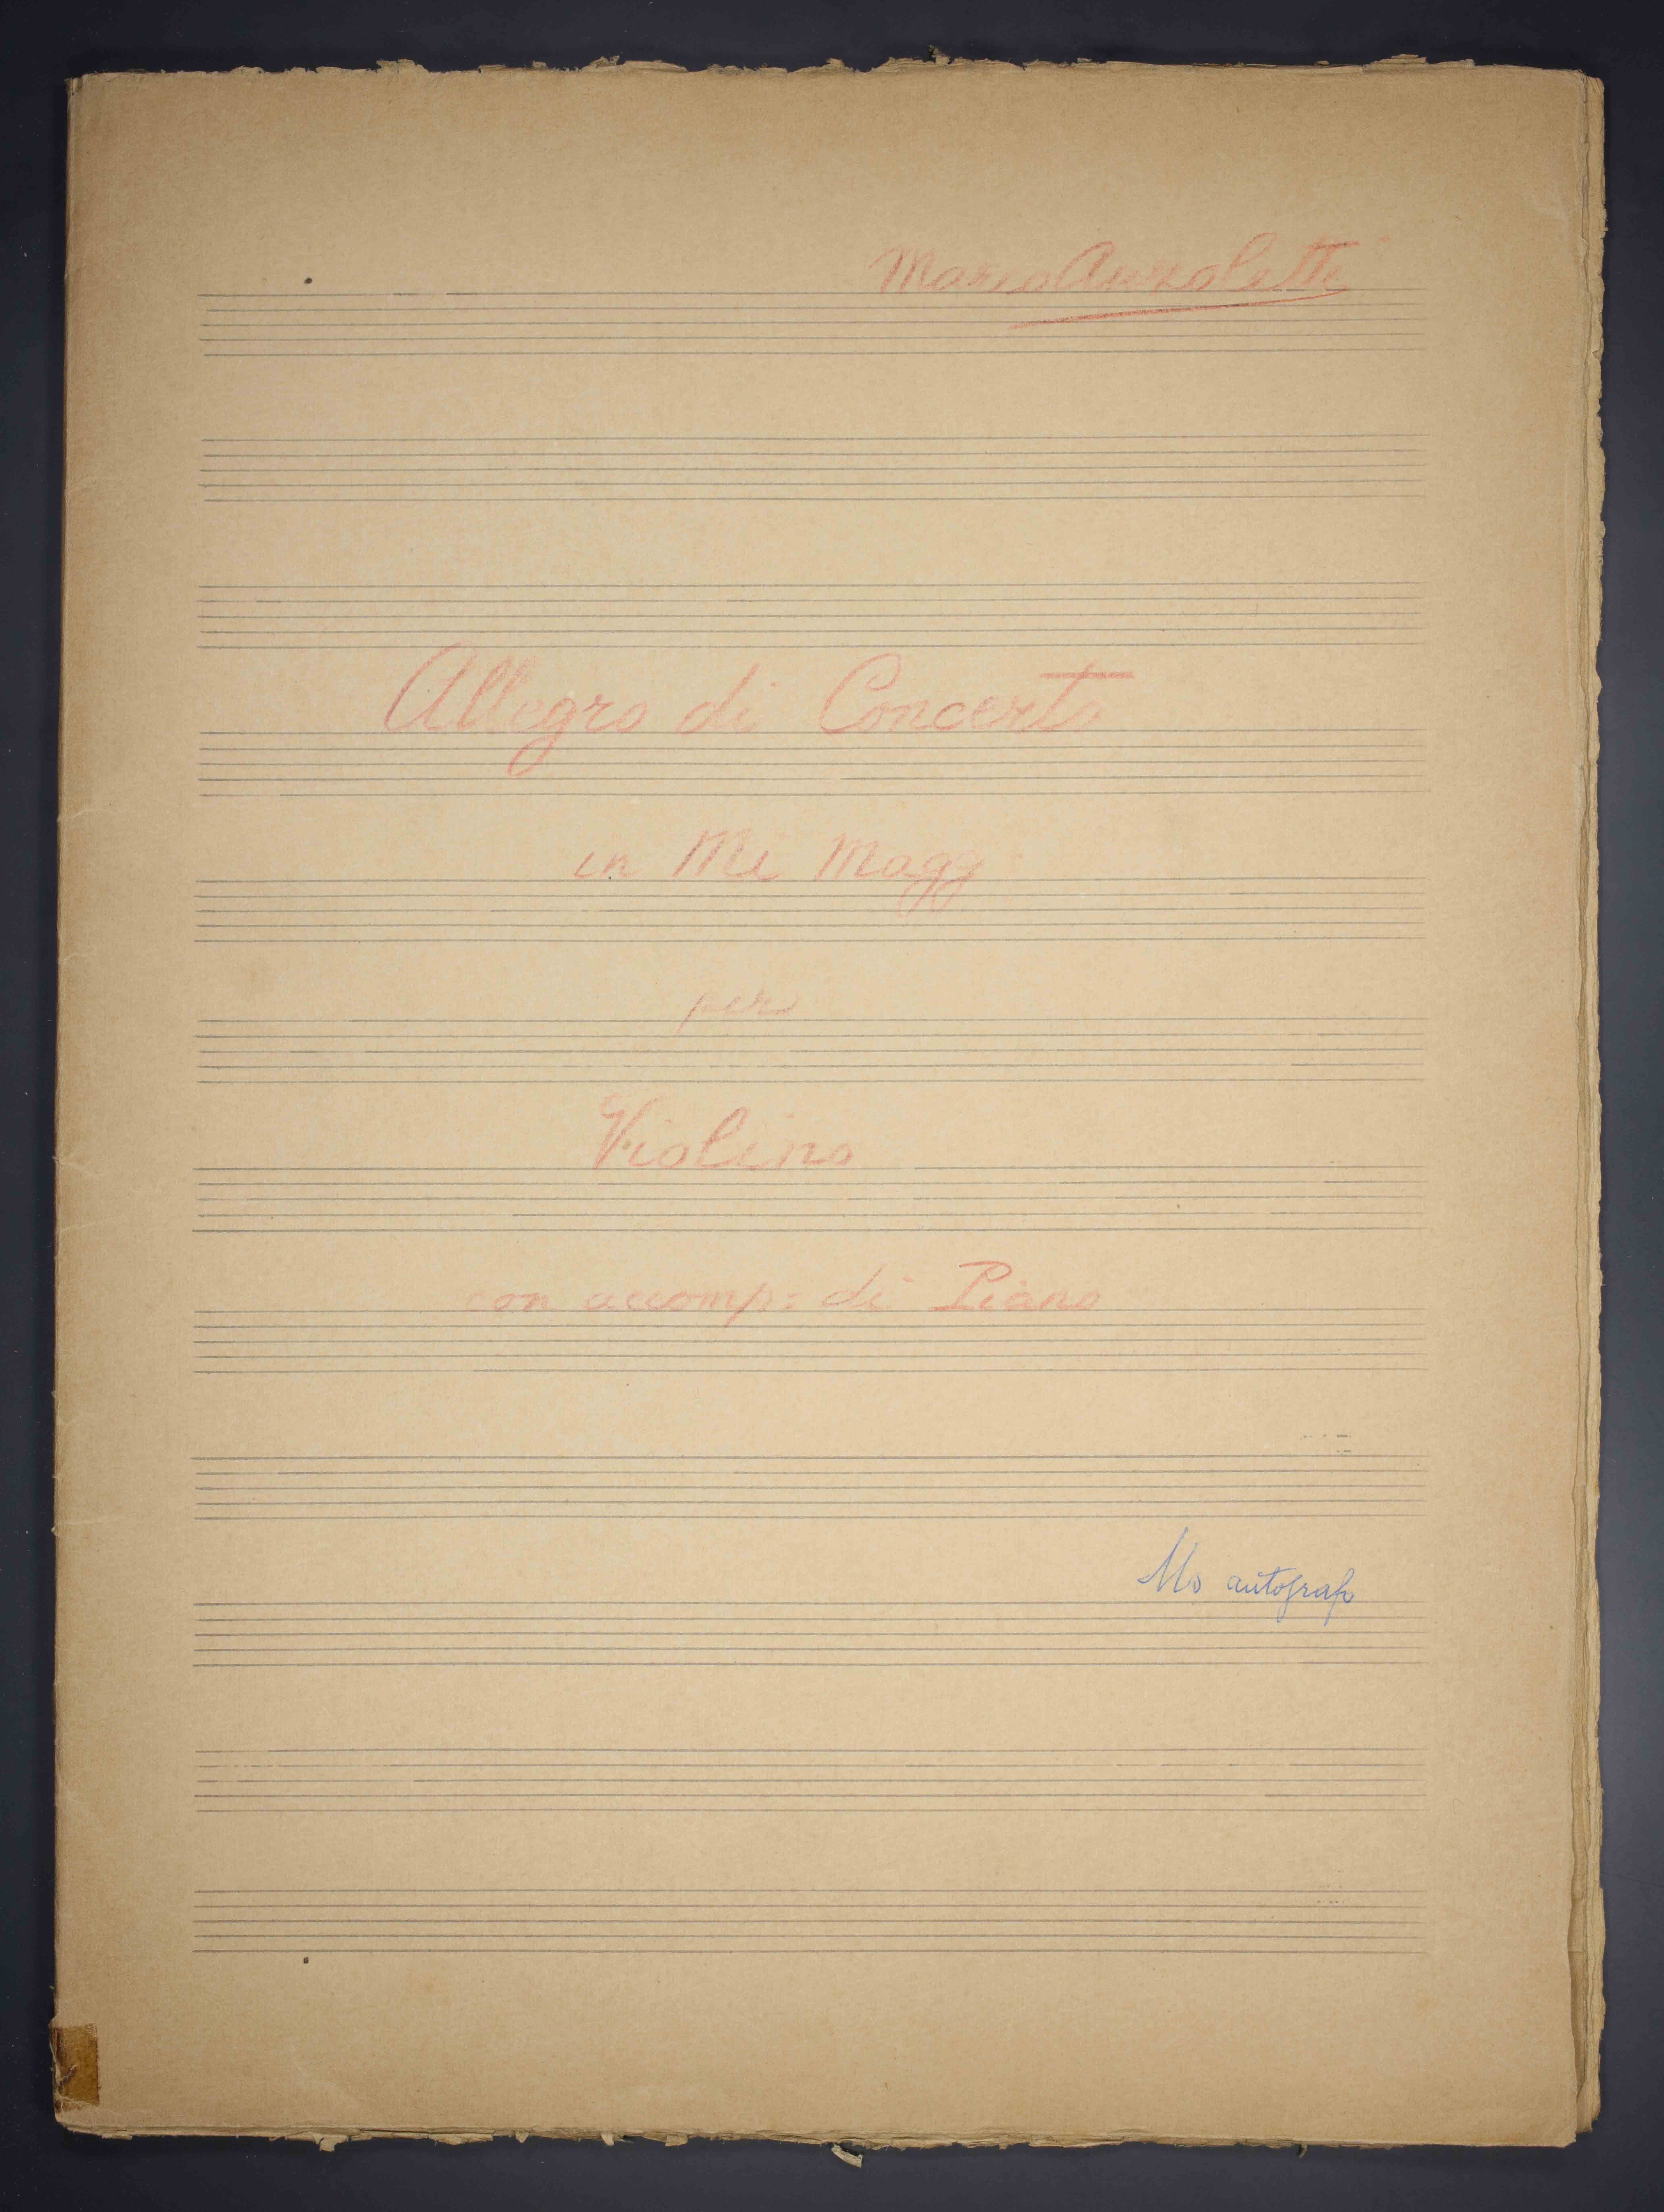 Mario Anzoletti
Allegro di Concerto
in Mi Magg
per
Violino
con accomp: di Piano
Ms autografo